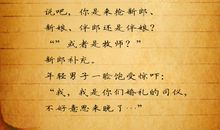 说吧，你是来抢新郎、
新娘、伴郎还是伴娘？
“”或者是牧师？”
新郎补充。
年轻男子一脸饱受惊吓：
“我、我是你们婚礼的司仪，
不好意思来晚了…”